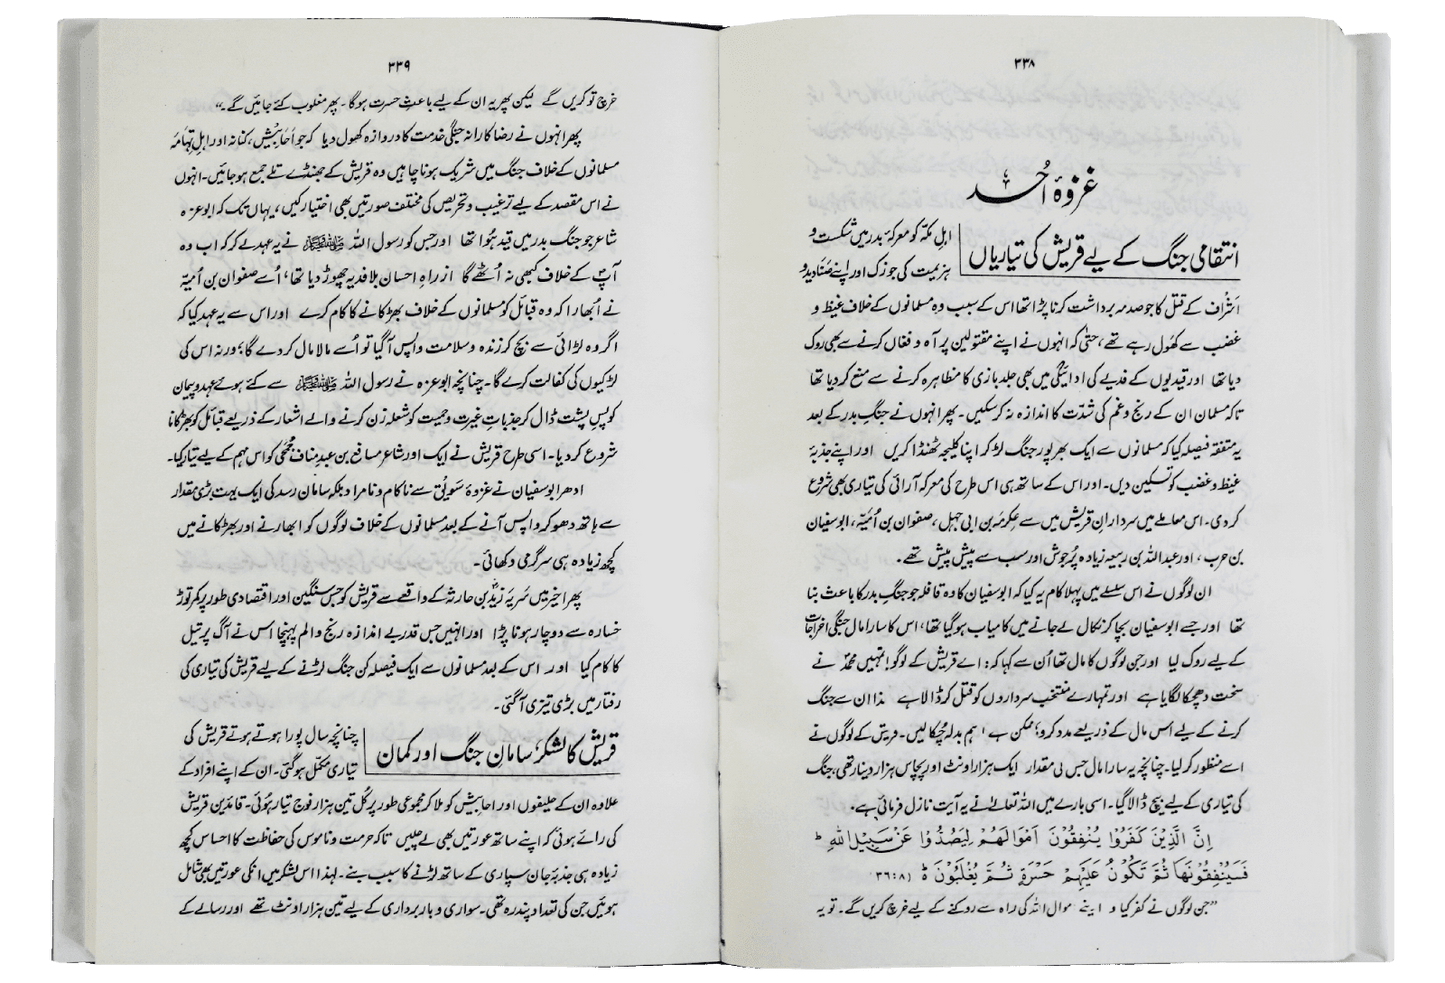 ۳۳۸
غزوۂ اُحد
انتقامی جنگ کے لیے قریش کی تیاریاں
اہلِ مکّہ کو معرکۂ بدر میں شکست و
ہزیمت کی جو زک اور اپنے صَنَادِید و
اَشراف کے قتل کا جو صدمہ برداشت کرنا پڑا تھا اس کے سبب وہ مسلمانوں کے خلاف غیظ و
غضب سے کھول رہے تھے، حتیٰ کہ انہوں نے اپنے مقتولین پر آہ و فغاں کرنے سے بھی روک
دیا تھا اور قیدیوں کے فدیے کی ادائیگی میں بھی جلد بازی کا مظاہرہ کرنے سے منع کر دیا تھا
تاکہ مسلمان ان کے رنج و غم کی شدّت کا اندازہ نہ کر سکیں۔ پھر انہوں نے جنگِ بدر کے بعد
یہ متفقہ فیصلہ کیا کہ مسلمانوں سے ایک بھرپور جنگ لڑ کر اپنا کلیجہ ٹھنڈا کریں اور اپنے جذبۂ
غیظ و غضب کو تسکین دیں۔ اور اس کے ساتھ ہی اس طرح کی معرکہ آرائی کی تیاری بھی شروع
کر دی۔ اس معاملے میں سردارانِ قریش میں سے عِکرِمہ بن ابی جہل، صفوان بن اُمیّہ، ابوسفیان
بن حرب، اور عبداللہ بن ربیعہ زیادہ پُرجوش اور سب سے پیش پیش تھے۔
ان لوگوں نے اس سلسلے میں پہلا کام یہ کیا کہ ابوسفیان کا وہ قافلہ جو جنگِ بدر کا باعث بنا
تھا اور جسے ابوسفیان بچا کر نکال لے جانے میں کامیاب ہو گیا تھا، اس کا سارا مال جنگی اخراجات
کے لیے روک لیا اور جن لوگوں کا مال تھا اُن سے کہا کہ: اے قریش کے لوگو! تمہیں محمدؐ نے
سخت دھچکا لگایا ہے اور تمہارے منتخب سرداروں کو قتل کر ڈالا ہے لہٰذا ان سے جنگ
کرنے کے لیے اس مال کے ذریعے مدد کرو؛ ممکن ہے ہم بدلہ چکا لیں۔ قریش کے لوگوں نے
اسے منظور کر لیا۔ چنانچہ یہ سارا مال جس کی مقدار ایک ہزار اونٹ اور پچاس ہزار دینار تھی، جنگ
کی تیاری کے لیے بیچ ڈالا گیا۔ اسی بارے میں اللہ تعالےٰ نے یہ آیت نازل فرمائی ہے.
اِنَّ الَّذِيْنَ كَفَرُوْا يُنْفِقُوْنَ اَمْوَالَهُمْ لِيَصُدُّوْا عَنْ سَبِيْلِ اللّٰهِ ط
فَسَيُنْفِقُوْنَهَا ثُمَّ تَكُوْنُ عَلَيْهِمْ حَسْرَةً ثُمَّ يُغْلَبُوْنَ ط (۳۶:۸)
”جن لوگوں نے کفر کیا وہ اپنے اموال اللہ کی راہ سے روکنے کے لیے خرچ کریں گے۔ تو یہ
۳۳۹
خرچ تو کریں گے لیکن پھر یہ ان کے لیے باعثِ حسرت ہو گا۔ پھر مغلوب کئے جائیں گے۔“
پھر انہوں نے رضاکارانہ جنگی خدمت کا دروازہ کھول دیا کہ جو اَحَابِیْش، کنانہ اور اہلِ تِہامَہ
مسلمانوں کے خلاف جنگ میں شریک ہونا چاہیں وہ قریش کے جھنڈے تلے جمع ہو جائیں۔ انہوں
نے اس مقصد کے لیے ترغیب و تحریص کی مختلف صورتیں بھی اختیار کیں، یہاں تک کہ ابوعزہ
شاعر جو جنگ بدر میں قید ہُوا تھا اور جس کو رسول اللہ ﷺ نے یہ عہد لے کر کہ اب وہ
آپؐ کے خلاف کبھی نہ اُٹھے گا ازراہِ احسان بلافدیہ چھوڑ دیا تھا، اُسے صفوان بن اُمیّہ
نے اُبھارا کہ وہ قبائل کو مسلمانوں کے خلاف بھڑکانے کا کام کرے اور اس سے یہ عہد کیا کہ
اگر وہ لڑائی سے بچ کر زندہ و سلامت واپس آ گیا تو اُسے مالا مال کر دے گا؛ ورنہ اس کی
لڑکیوں کی کفالت کرے گا۔ چنانچہ ابوعزہ نے رسول اللہ ﷺ سے کئے ہوئے عہد و پیمان
کو پسِ پشت ڈال کر جذباتِ غیرت و حمیت کو شعلہ زن کرنے والے اشعار کے ذریعے قبائل کو بھڑکانا
شروع کر دیا۔ اسی طرح قریش نے ایک اور شاعر مسافع بن عبدِ مناف جُمَحی کو اس مہم کے لیے تیار کیا۔
ادھر ابوسفیان نے غزوۂ سَوِیْق سے ناکام و نامراد بلکہ سامان رسد کی ایک بہت بڑی مقدار
سے ہاتھ دھو کر واپس آنے کے بعد مسلمانوں کے خلاف لوگوں کو ابھارنے اور بھڑکانے میں
کچھ زیادہ ہی سرگرمی دکھائی۔
پھر اخیر میں سَرِیّہ زیدؓ بن حارثہ کے واقعے سے قریش کو جس سنگین اور اقتصادی طور پر کمر توڑ
خسارہ سے دوچار ہونا پڑا اور انہیں جس قدر بے اندازہ رنج و الم پہنچا اس نے آگ پر تیل
کا کام کیا اور اس کے بعد مسلمانوں سے ایک فیصلہ کن جنگ لڑنے کے لیے قریش کی تیاری کی
رفتار میں بڑی تیزی آ گئی۔
قریش کا لشکر، سامانِ جنگ اور کمان
چنانچہ سال پورا ہوتے ہوتے قریش کی
تیاری مکمّل ہو گئی۔ ان کے اپنے افراد کے
علاوہ ان کے حلیفوں اور احابیش کو ملا کر مجموعی طور پر کُل تین ہزار فوج تیار ہُوئی۔ قائدینِ قریش
کی رائے ہوئی کہ اپنے ساتھ عورتیں بھی لے چلیں تاکہ حرمت و ناموس کی حفاظت کا احساس کچھ
زیادہ ہی جذبۂ جان سپاری کے ساتھ لڑنے کا سبب بنے۔ لہٰذا اس لشکر میں انکی عورتیں بھی شامل
ہوئیں جن کی تعداد پندرہ تھی۔ سواری و باربرداری کے لیے تین ہزار اونٹ تھے اور رسالے کے